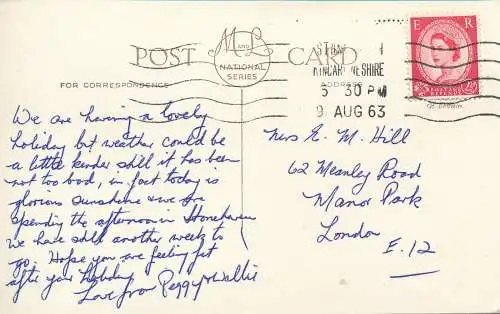 POST CARD
M AND L
NATIONAL
SERIES
FOR CORRESPONDENCE
ADDRESS
KINCARDINESHIRE
5 30 PM
9 AUG 63
E R
POSTAGE
REVENUE
We are having a lovely
holiday but weather could be
a little kinder still it has been
not too bad, in fact today is
glorious sunshine & we are
spending the afternoon in Stonehaven
we have still another week to
go. Hope you are feeling fit
after your holiday
Love from Peggy & Wallie
Mrs E. M. Hill
62 Meanley Road
Manor Park
London
E.12